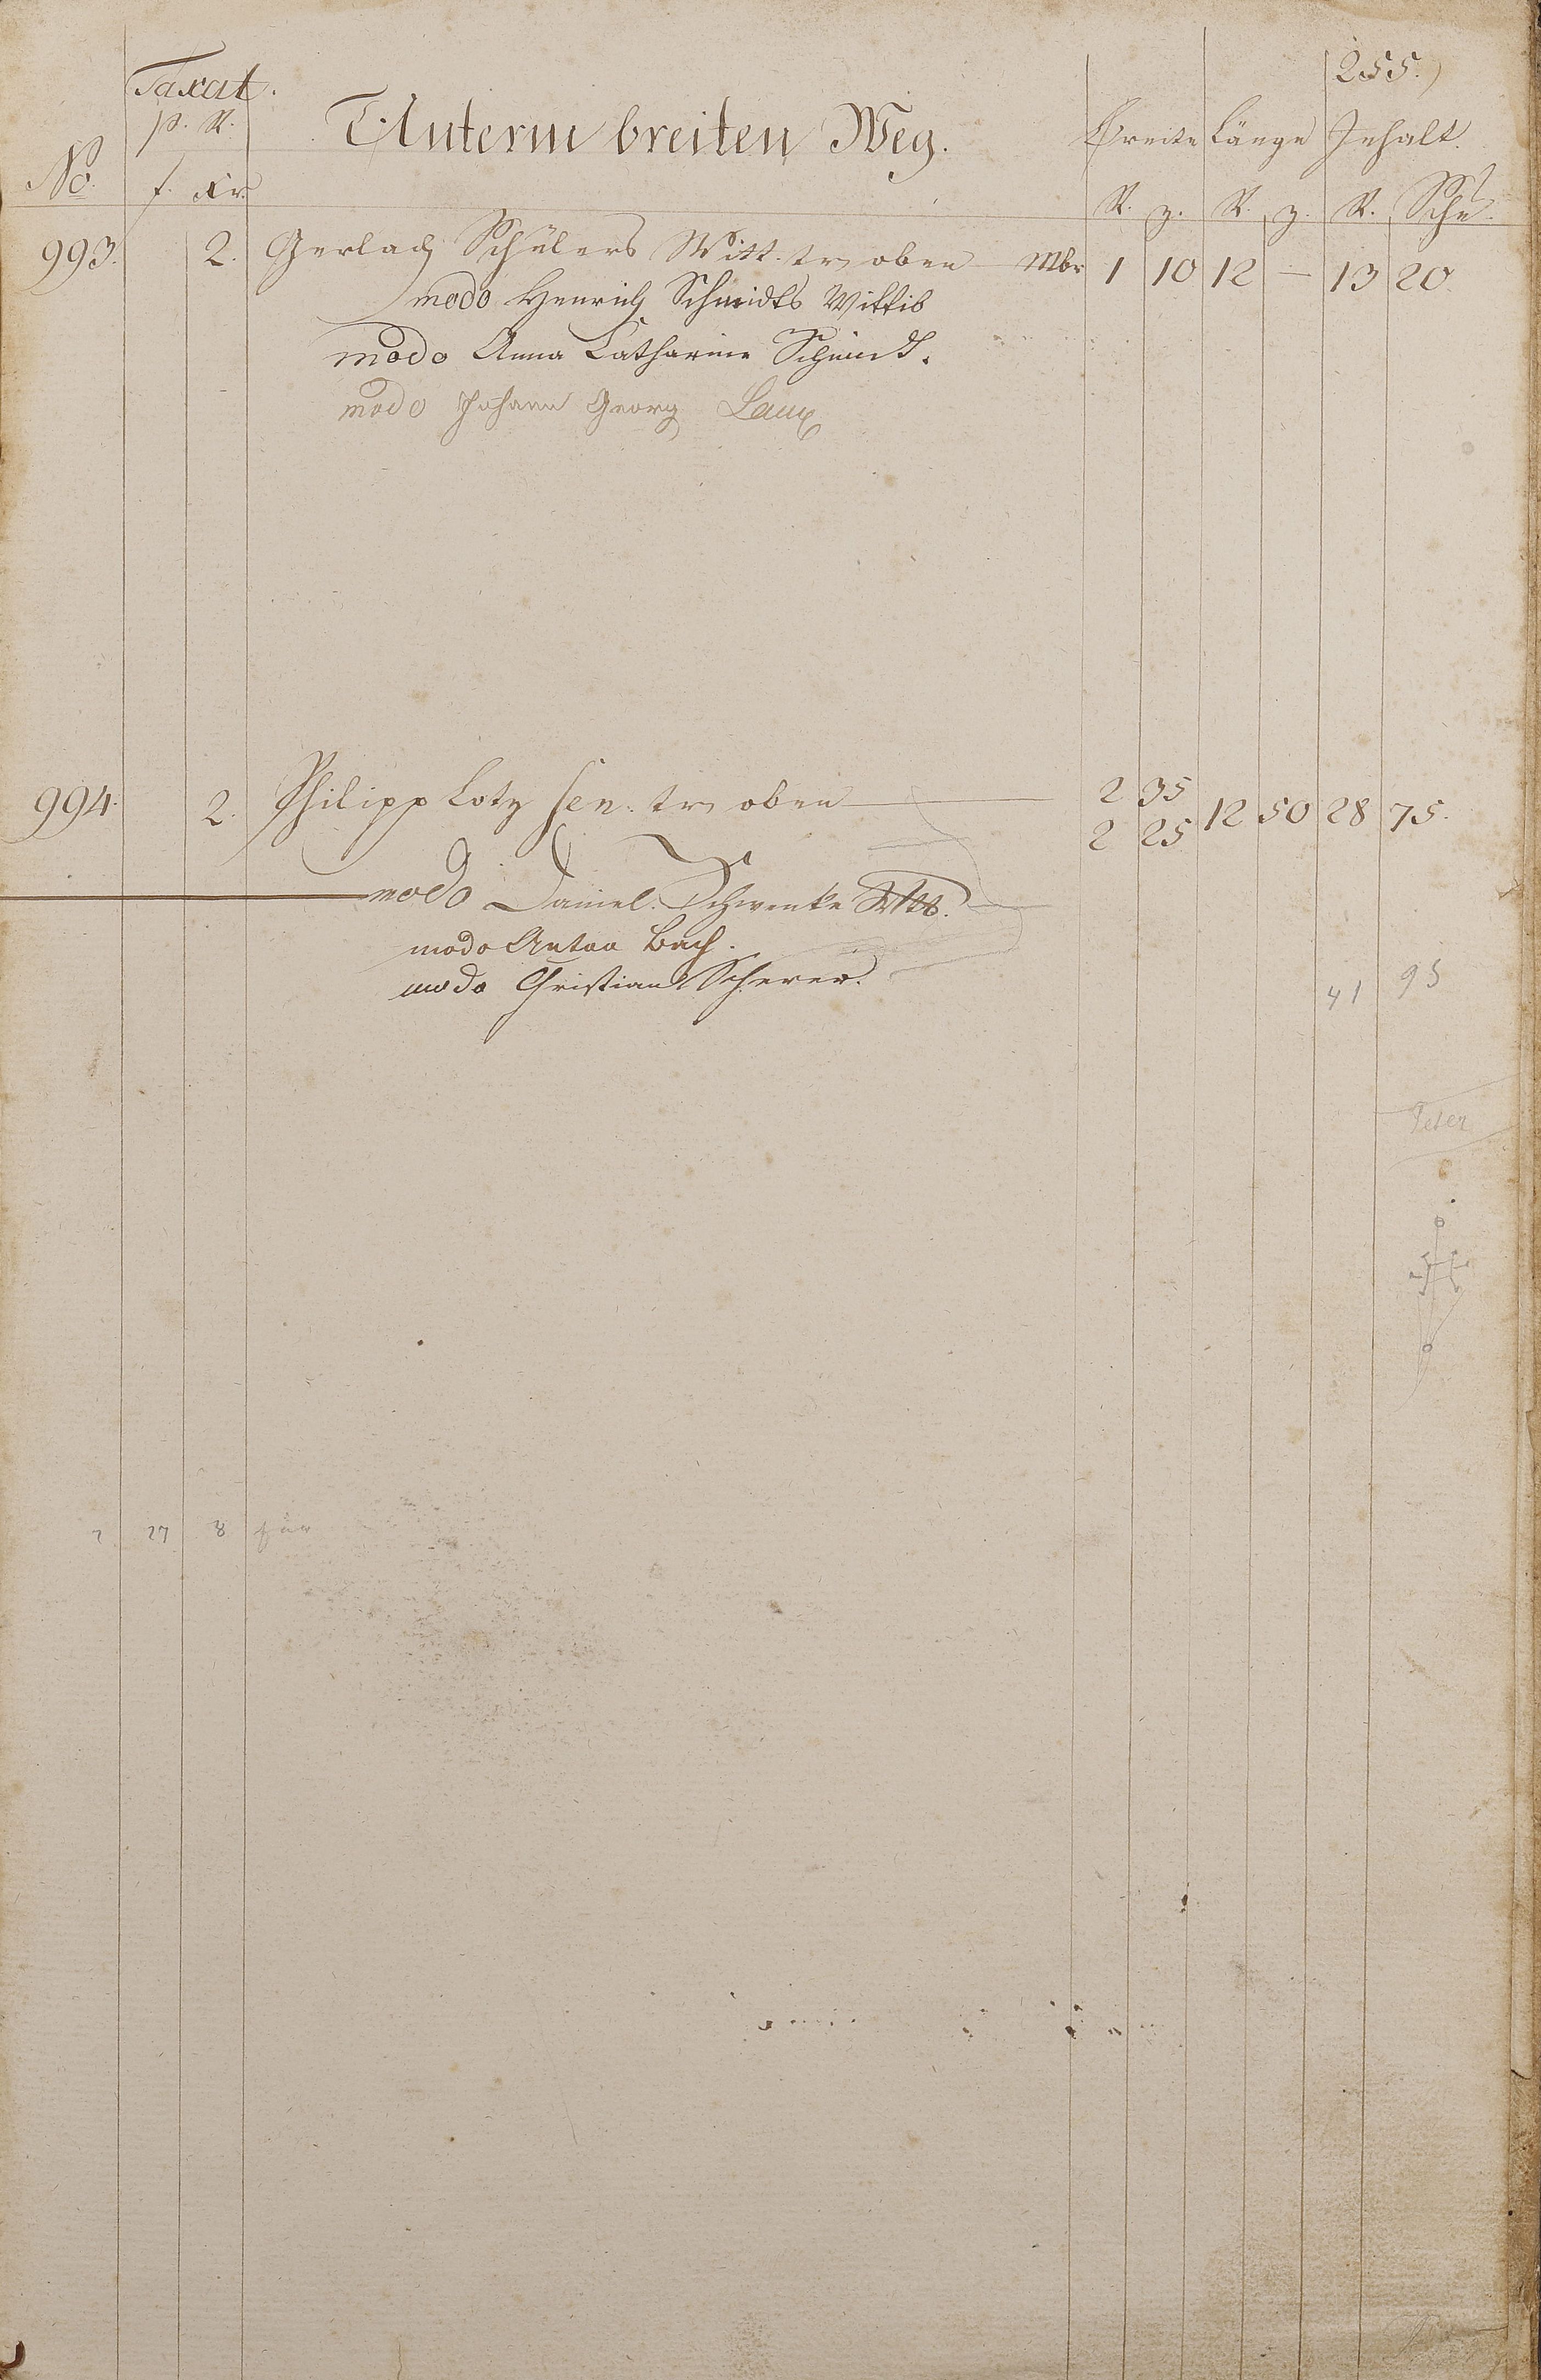 255.)
Taxat.
p. R.
Unterm breiten Weg.
Breite Länge Inhalt.
No. f. xr.
R. z. R. z. R. Schu.
993. 2. Gerlach Schülers Witt. tr oben Mbr 1 10 12 — 13 20.
modo Henrich Schmidts Wittib
modo Anna Catharine Schmidt.
modo Johann Georg Laux
994. 2. Philipp Lotz sen. tr oben 2 35
2 25 12 50 28 75.
modo Daniel Schwenke
modo Anton Bach.
modo Christian Scherer.
41 95
Peter
27 8 für